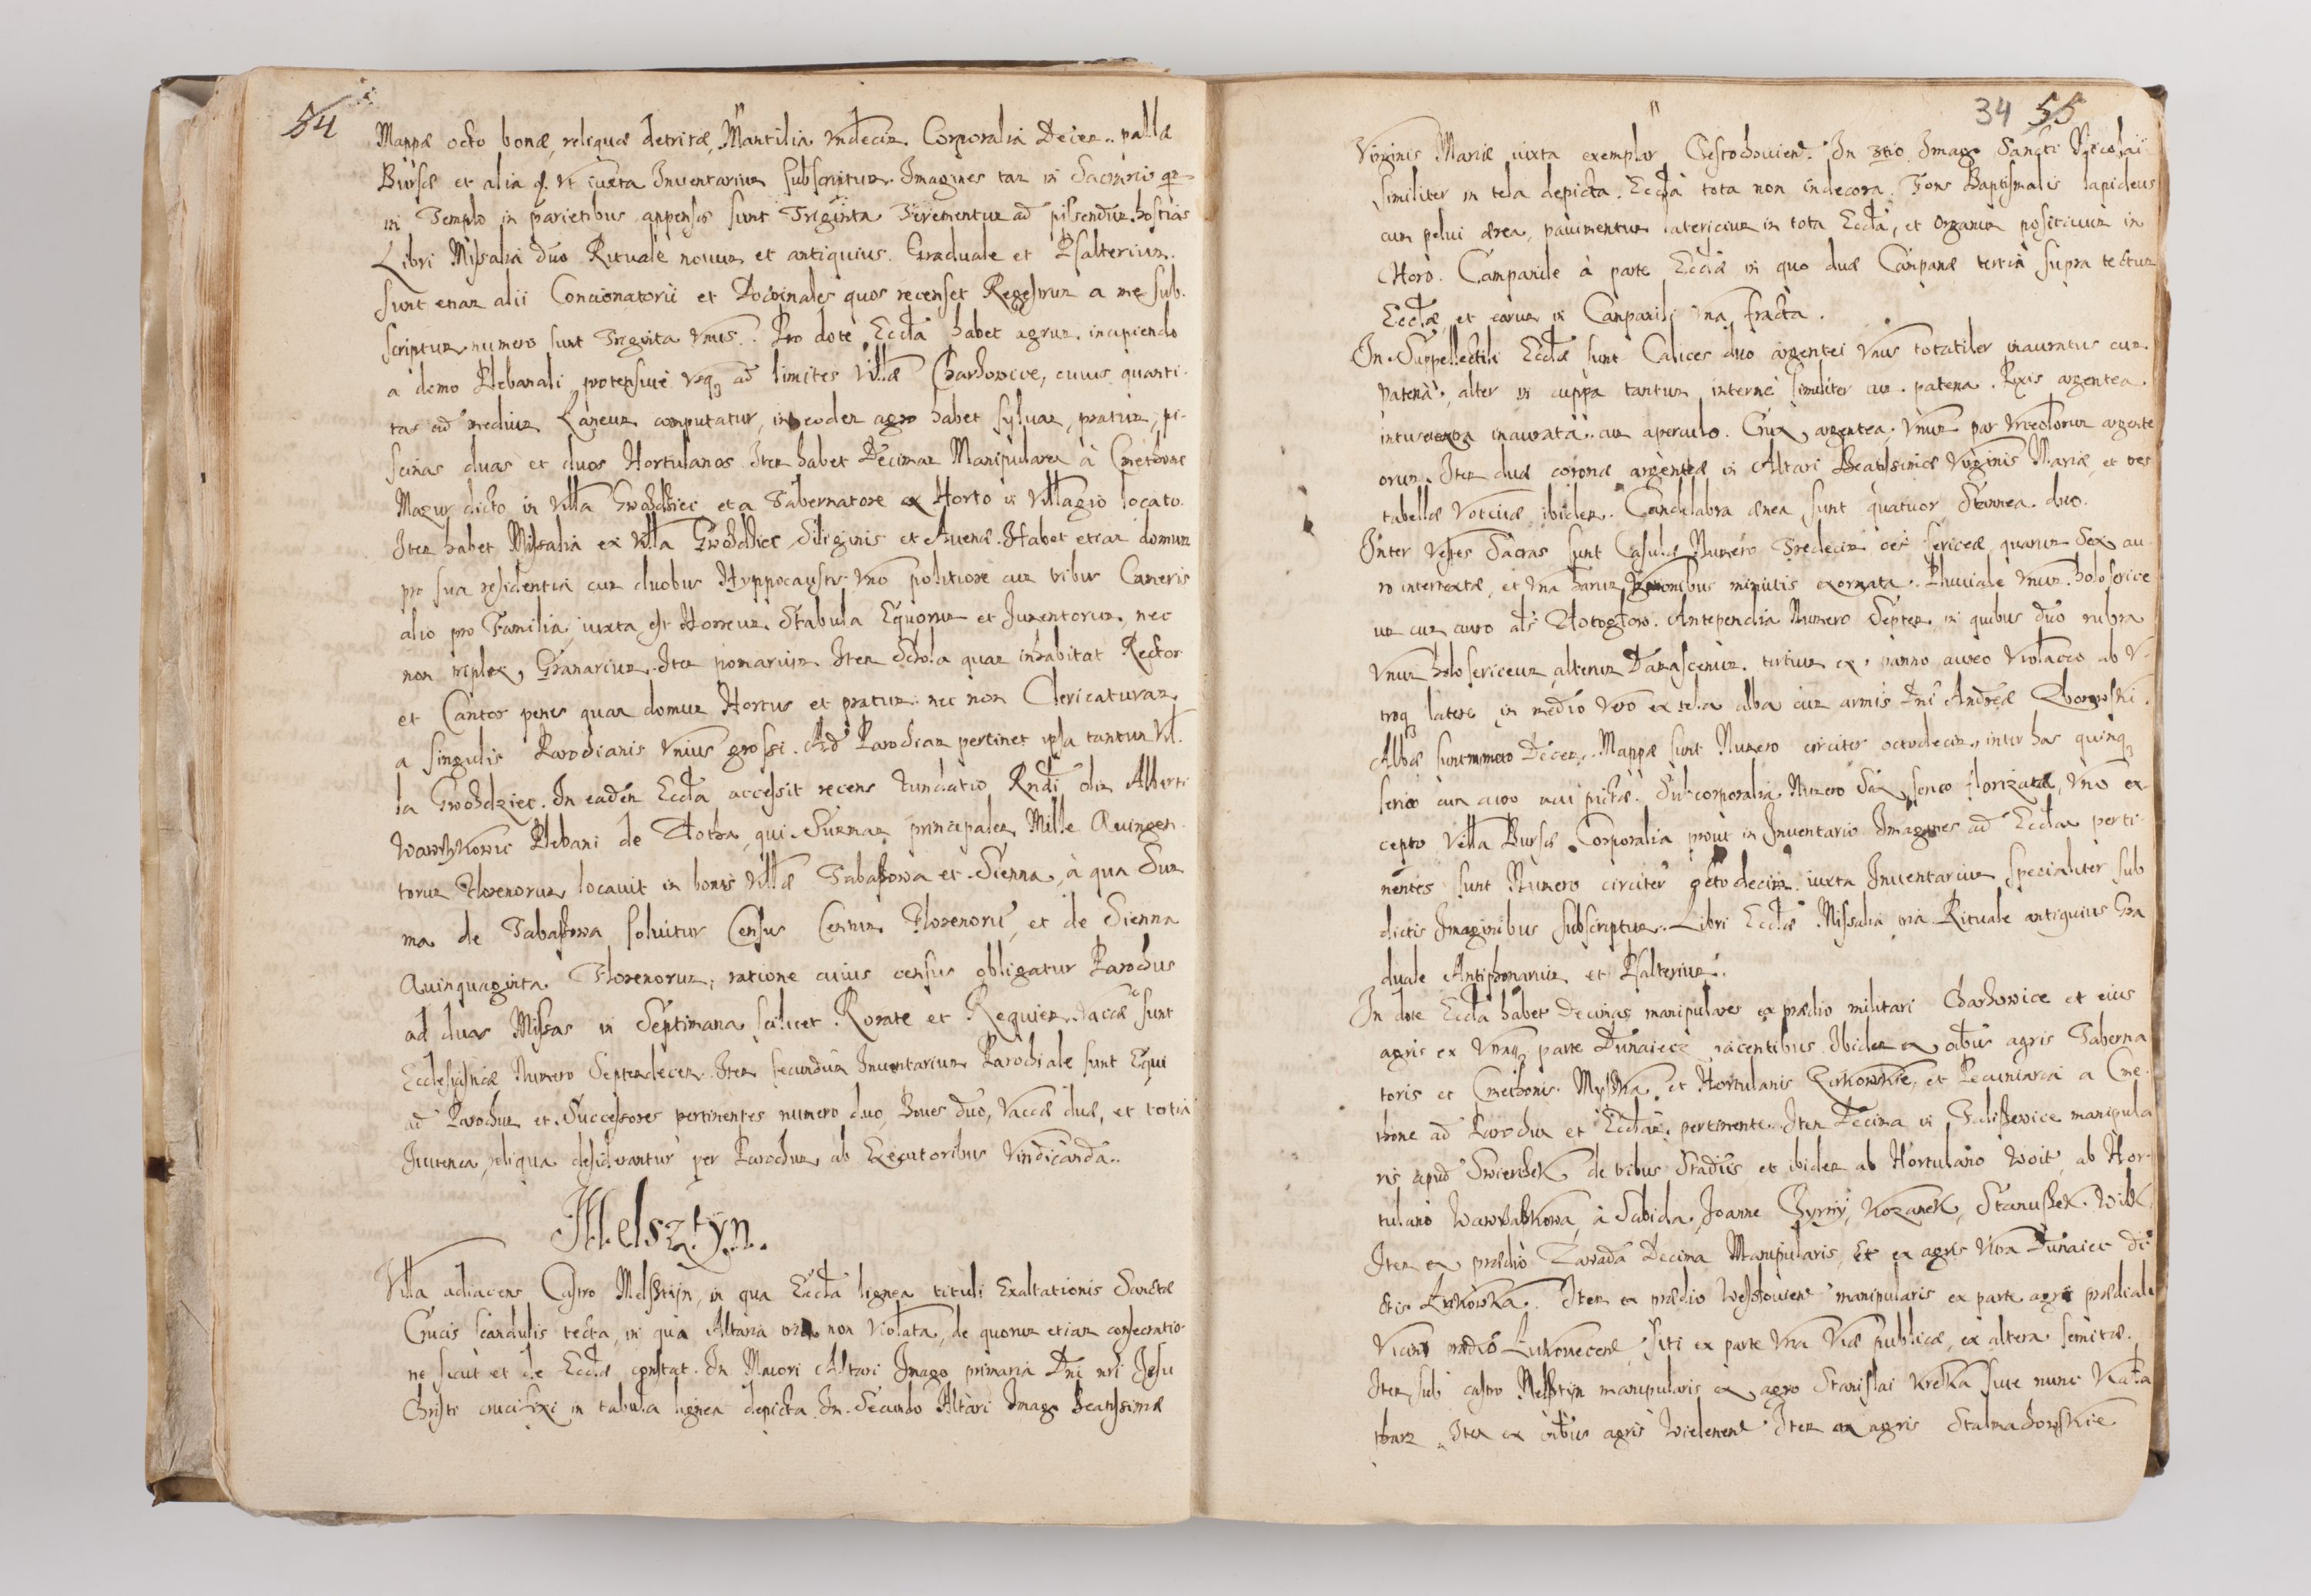 54
Mappæ octo bonæ, reliquæ detritæ, Mantilia Vndecim. Corporalia Decem. pallæ
Bursæ et alia q. vt iuxta Inventarium subscriptum. Imagines tam in Sacrario qm
in Templo in parietibus appensæ sunt Triginta. Ferementum ad pisendum hostias
Libri Missalia duo Rituale nouum et antiquius. Graduale et Psalterium.
sunt etiam alii Concionatorii et Doctrinales quos recenset Regestrum a me sub-
scriptum numero sunt Triginta Vnus. Pro dote Eccla habet agrum incipiendo
a domo Plebanali protensiue vsq ad limites Villæ Charzowice, cuius quanti-
tas ad medium Laneum computatur, in eodem agro habet syluam, pratum, pi-
scinas duas et duos Hortulanos. Item habet Decimam Manipularem à Cmethone
Mazur dicto in Villa Gwozdziec et a Tabernatore ex Horto in Villagio locato.
Item habet Missalia ex Villa Gwozdziec Siliginis et Auenæ. Habet etiam domum
pro sua residentia cum duobus Hyppocaustis Vno politiore cum tribus Cameris
alio pro Familia, iuxta est Horreum. Stabula Equorum et Jumentorum, nec
non triplex Granarium. Item pomarium. Item Schola quam inhabitat Rector
et Cantor penes quam domum Hortus et pratum. nec non Clericaturam
a singulis Parochianis Vnius grossi. Ad Parochiam pertinet ipsa tantum Vil-
la Gwozdziec. In eadem Eccla accessit recens Fundatio Rndi olim Alberti
Wawrzkowic Plebani de Zlotha, qui Summam principalem Mille Quingen-
torum Florenorum locauit in bonis Villæ Tabaszowa et Sienna, à qua Sum
ma de Tabaszowa soluitur Census Centum Florenorum, et de Sienna
Quinquaginta Florenorum, ratione cuius census obligatur Parochus
ad duas Missas in Septimana scilicet Rorate et Requiem. Vaccæ sunt
Ecclesiasticæ Numero Septemdecem. Item secundum Inuentarium Parochiale sunt Equi
ad Parochum et Successores pertinentes numero duo, Boues duo, Vaccæ duæ, et tertia
Juuenca, reliqua desiderantur per Parochum ab Executoribus Vindicanda.
Melsztyn.
Villa adiacens Castro Melsztijn, in qua Eccla lignea tituli Exaltationis Sanctæ
Crucis scandulis tecta, in qua Altaria tria non Violata, de quorum etiam consecratio-
ne sicut et de Eccla constat. In Maiori Altari Imago primaria Dni nri Jesu
Christi crucifixi in tabula lignea depicta. In Secundo Altari Imago Beatissimæ
34 55
Virginis Mariæ iuxta exemplar Cestochouien. In 3tio Imago Sancti Nicolai
similiter in tela depicta. Eccla tota non indecora. Fons Baptismalis lapideus
cum pelui ærea, pauimentum latericium in tota Eccla, et Organum positiuum in
Choro. Campanile à parte Ecclæ in quo duæ Campanæ tertia supra tectum
Ecclæ, et earum in Campanili Vna fracta.
In Suppellectili Ecclæ sunt Calices duo argentei Vnus totaliter inauratus cum
patena, alter in cuppa tantum interne similiter cum patena. Pixis argentea
intus inaurata cum aperculo. Crux argentea, Vnum par Vrceolorum argente
orum. Item duæ coronæ argenteæ in Altari Beatissimæ Virginis Mariæ, et tres
tabellæ Votiuæ ibidem. Candelabra ænea sunt quatuor Stannea duo.
Inter Vestes Sacras sunt Casulæ Numero Tredecim oes sericeæ, quarum Sex au-
ro intertextæ, et Vna harum Vnionibus minutis exornata. Pluuiale Vnum holoserice
um cum auro als Zlotoglow. Antependia Numero Septem, in quibus duo rubra
Vnum holosericeum alterum Damascenum. tertium ex panno aureo Violaceo ab V-
troq latere in medio Vero ex tela alba cum armis Dni Andreæ Zborowski.
Albæ sunt numero Decem. Mappæ sunt Numero circiter octodecim, inter has quinq
serico cum auro acu pictæ. Subcorporalia Numero Sex serico florizatæ, Vno ex-
cepto Villa Bursæ Corporalia prout in Inuentario. Imagines ad Ecclam perti-
nentes sunt Numero circiter octodecim iuxta Inuentarium specialiter sub
dictis Imaginibus subscriptum. Libri Ecclæ Missalia tria Rituale antiquius Gra
duale Antiphonarium et Psalterium.
In dote Eccla habet Decimas manipulares ex prædio militari Charzowice et eius
agris ex Vtraq parte Dunaiecz iacentibus. Ibidem ex oibus agris Taberna
toris et Cmethonis Myszka, et Hortulanis Zirkowskie, et Pecuniaria a Cme-
thone ad Parochum et Ecclam pertinente. Item Decima in Faliszewice manipula
ris apud Swierczek de tribus Stadiis et ibidem ab Hortulano Woit, ab Hor-
tulano Wawrzaszkowa, à Sabida, Joanne Czyrny, Kozanek, Stanuszek Wilk.
Item ex prædio Zawada Decima Manipularis, Et ex agris Vltra Dunaiec di
ctis Zirkowka. Item ex prædio Wesolouien manipularis ex parte agri prædialis
Vicini prædio Lukouiecen, siti ex parte Vna Viæ publicæ, ex altera semitæ.
Item sub castro Melsztijn manipularis ex agro Stanislai Kreska siue nunc Kacza
tharz. Item ex oibus agris Wielenen Item ex agris Stalmachowskie